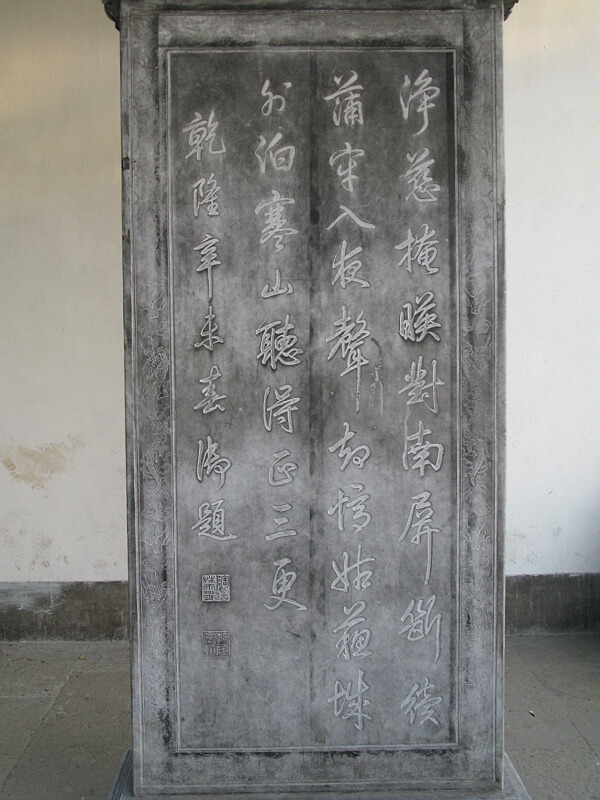 淨慈掩映對南屏斷續
蒲牢入夜聲却憶姑蘇城
外泊寒山聽得正三更
乾隆辛未春御題